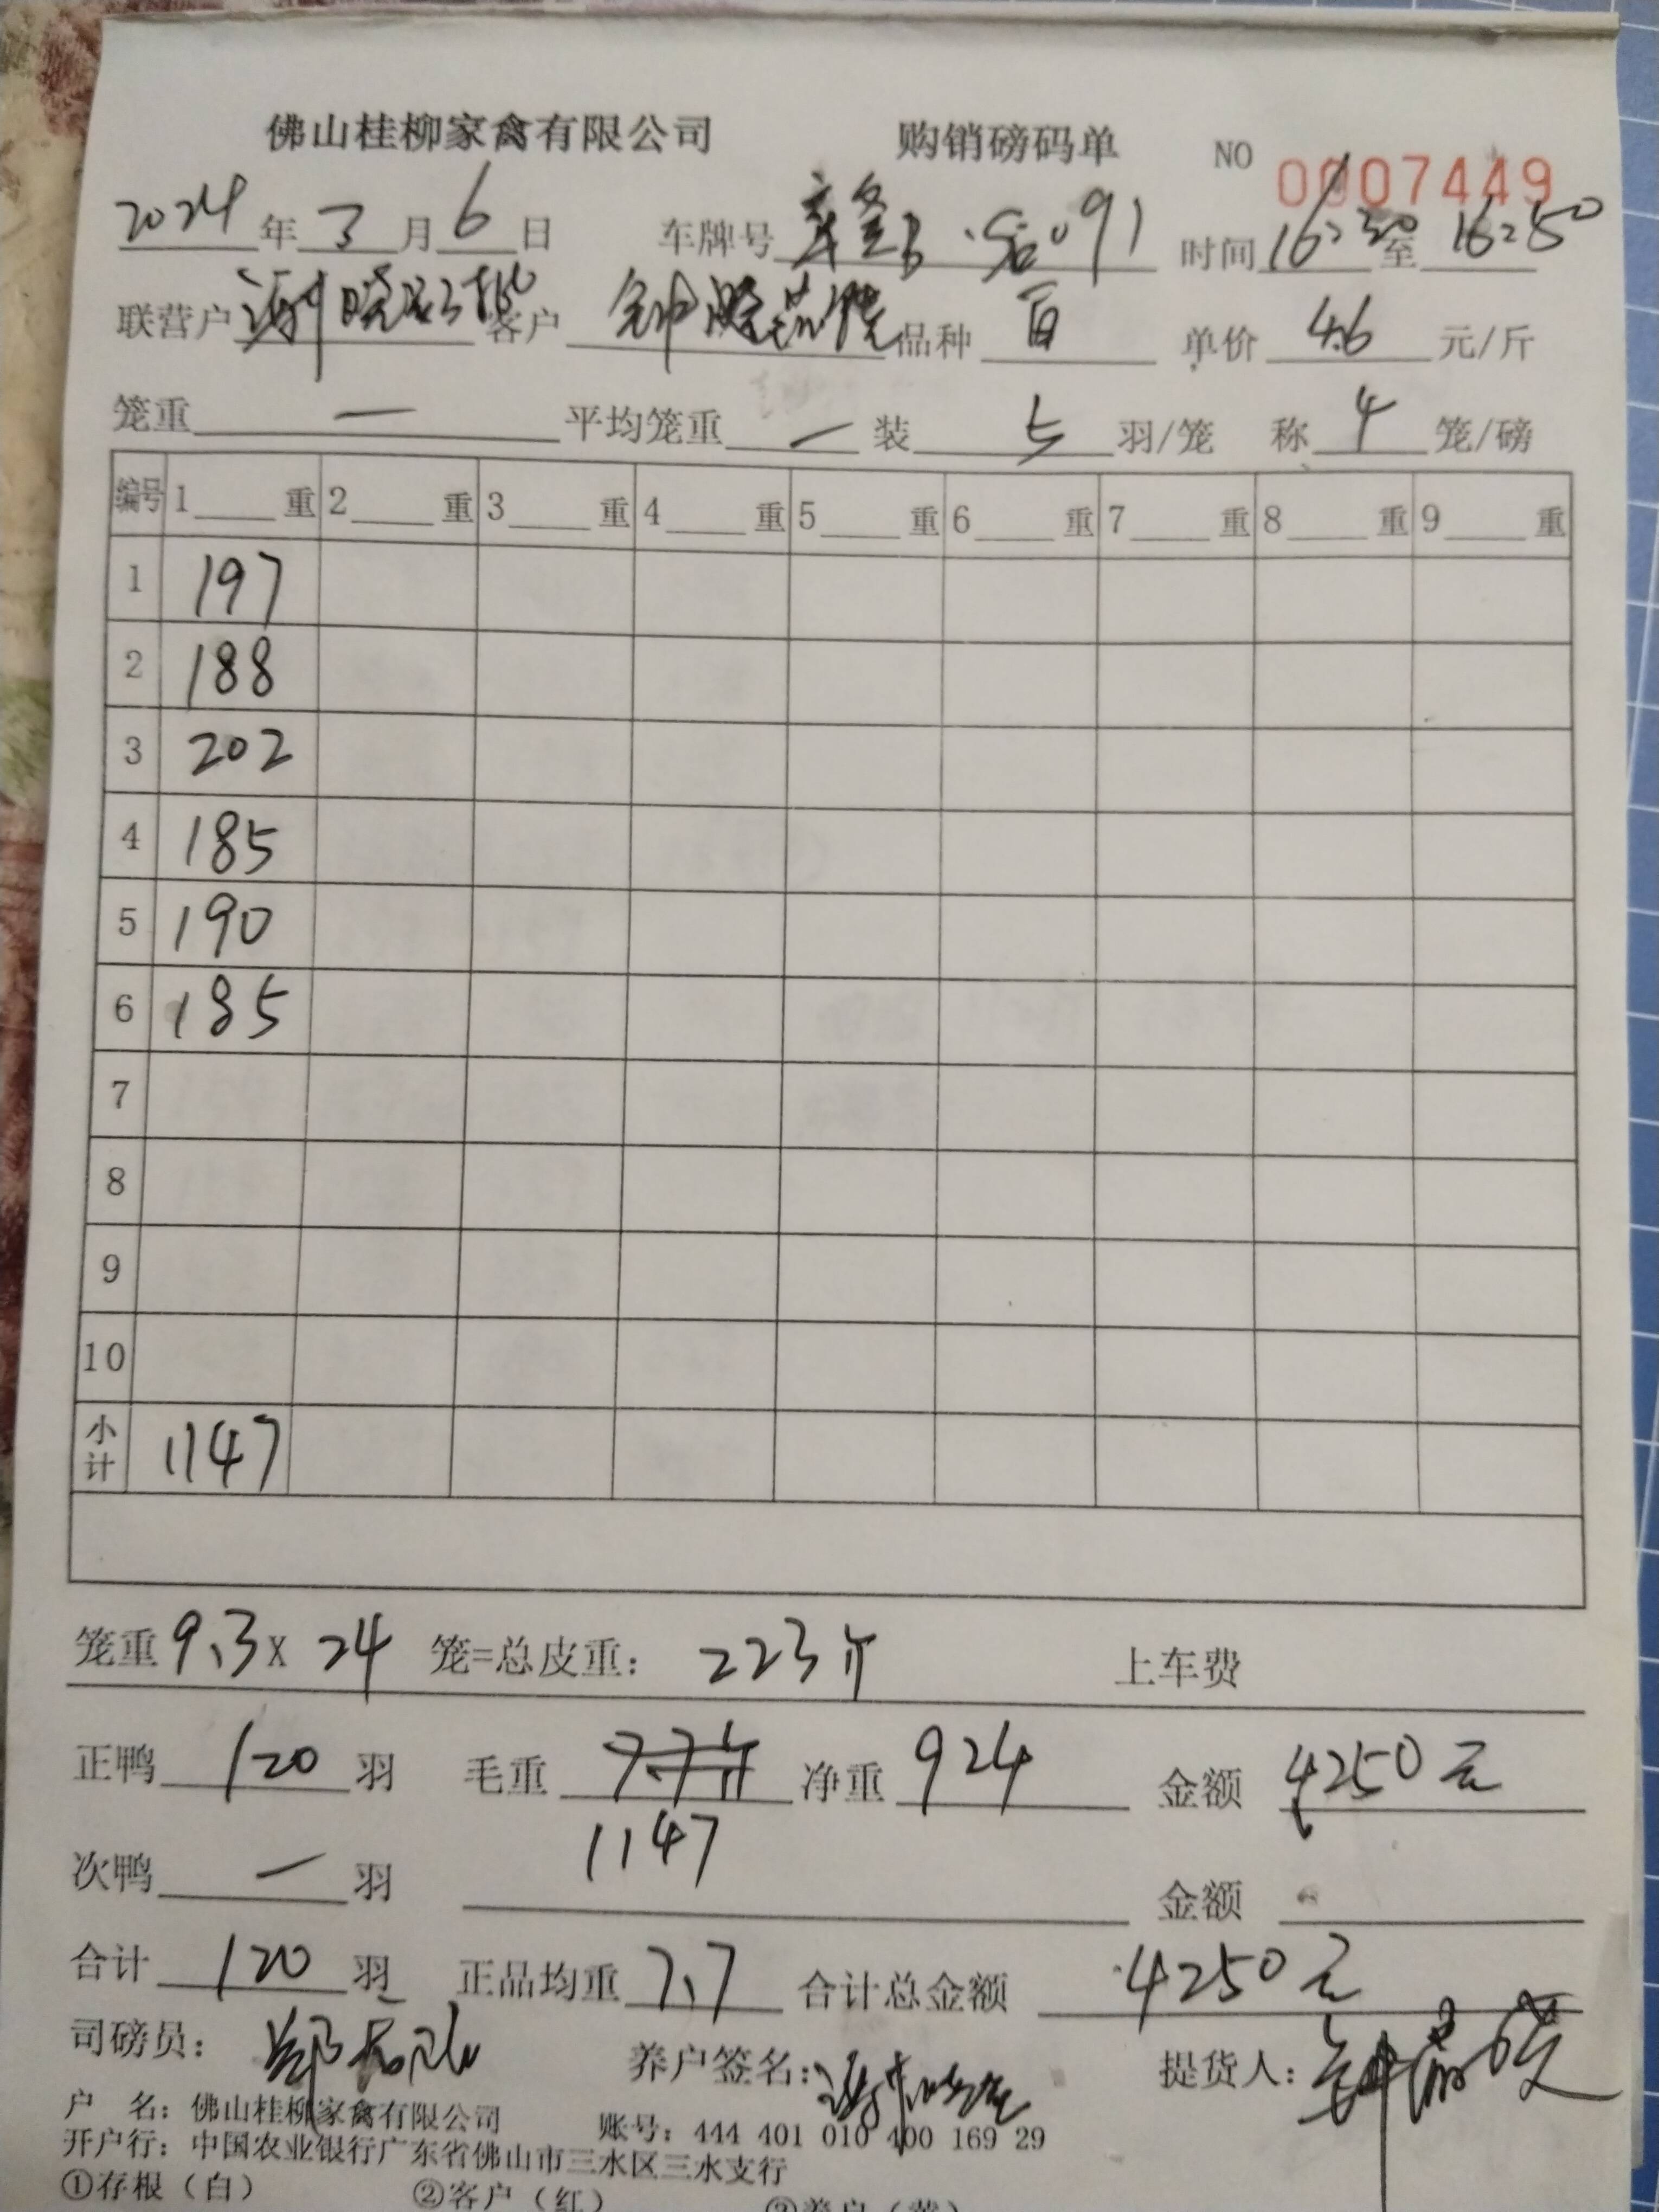 佛山桂柳家禽有限公司 购销磅码单 NO 0007449
2024年3月6日 车牌号 091 时间16:30至16:50
联营户 客户 品种 单价 4.6 元/斤
笼重 — 平均笼重 — 装 5 羽/笼 称 4 笼/磅
编号 1 重 2 重 3 重 4 重 5 重 6 重 7 重 8 重 9 重
1 197
2 188
3 202
4 185
5 190
6 185
7
8
9
10
小计 1147
笼重 9.3 X 24 笼=总皮重: 223斤 上车费
正鸭 120 羽 毛重 净重 924 金额 4250元
1147
次鸭 — 羽 金额
合计 120 羽 正品均重 7.7 合计总金额 4250元
司磅员: 养户签名: 提货人:
户 名: 佛山桂柳家禽有限公司 账号: 444 401 010 400 169 29
开户行: 中国农业银行广东省佛山市三水区三水支行
①存根（白） ②客户（红） ③养户（黄）